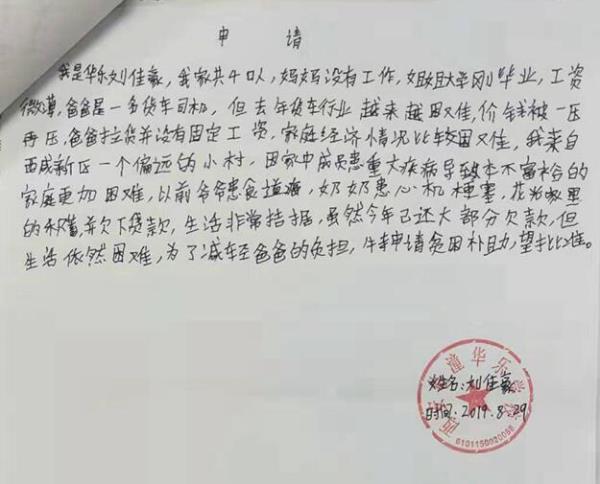 申 请
我是华乐刘佳豪，我家共4口人，妈妈没有工作，姐姐大学刚毕业，工资
微薄，爸爸是一名货车司机，但去年货车行业越来越困难，价钱被一压
再压，爸爸拉货并没有固定工资，家庭经济情况比较困难，我来自
西咸新区一个偏远的小村，因家中成员患重大疾病导致本不富裕的
家庭更加困难，以前爷爷患食道癌，奶奶患心机梗塞，花光家里
的积蓄并欠下贷款，生活非常拮据，虽然今年已还大部分欠款，但
生活依然困难，为了减轻爸爸的负担，特申请贫困补助，望批准。
潼华乐
姓名：刘佳豪
时间：2019.8.29